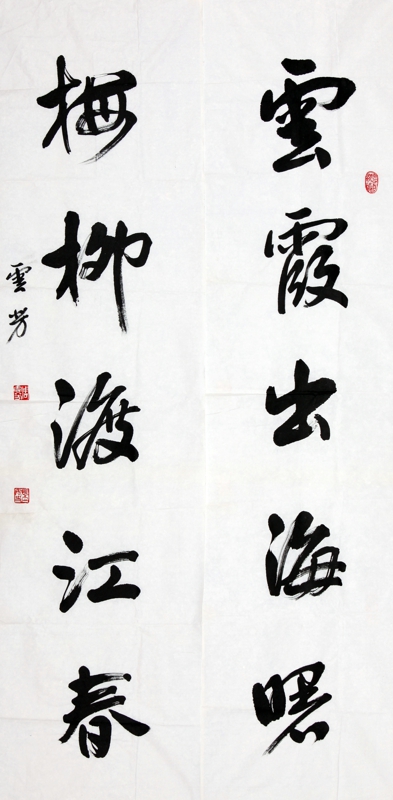 雲霞出海曙
梅柳渡江春
雲芳